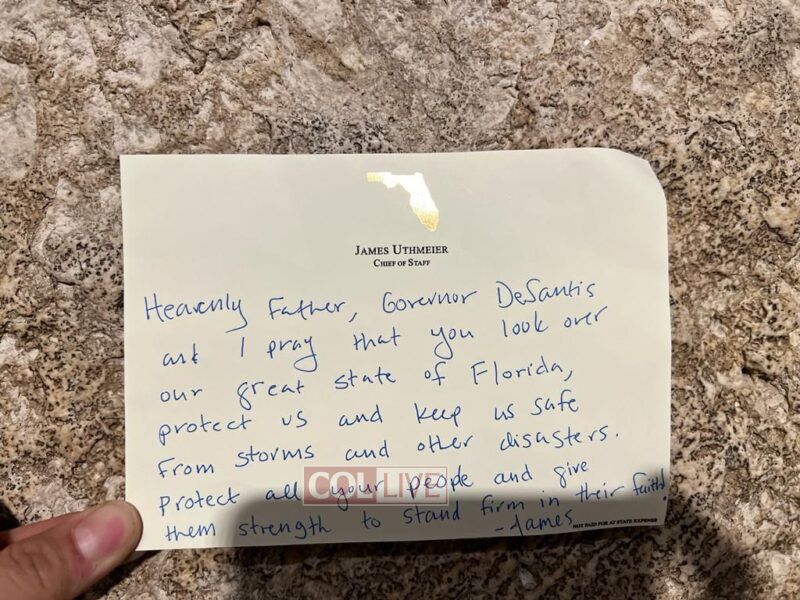 JAMES UTHMEIER
CHIEF OF STAFF
Heavenly Father, Governor DeSantis
and I pray that you look over
our great state of Florida,
protect us and keep us safe
from storms and other disasters.
Protect all your people and give
them strength to stand firm in their faith!
-James
NOT PAID FOR AT STATE EXPENSE
COLLIVE